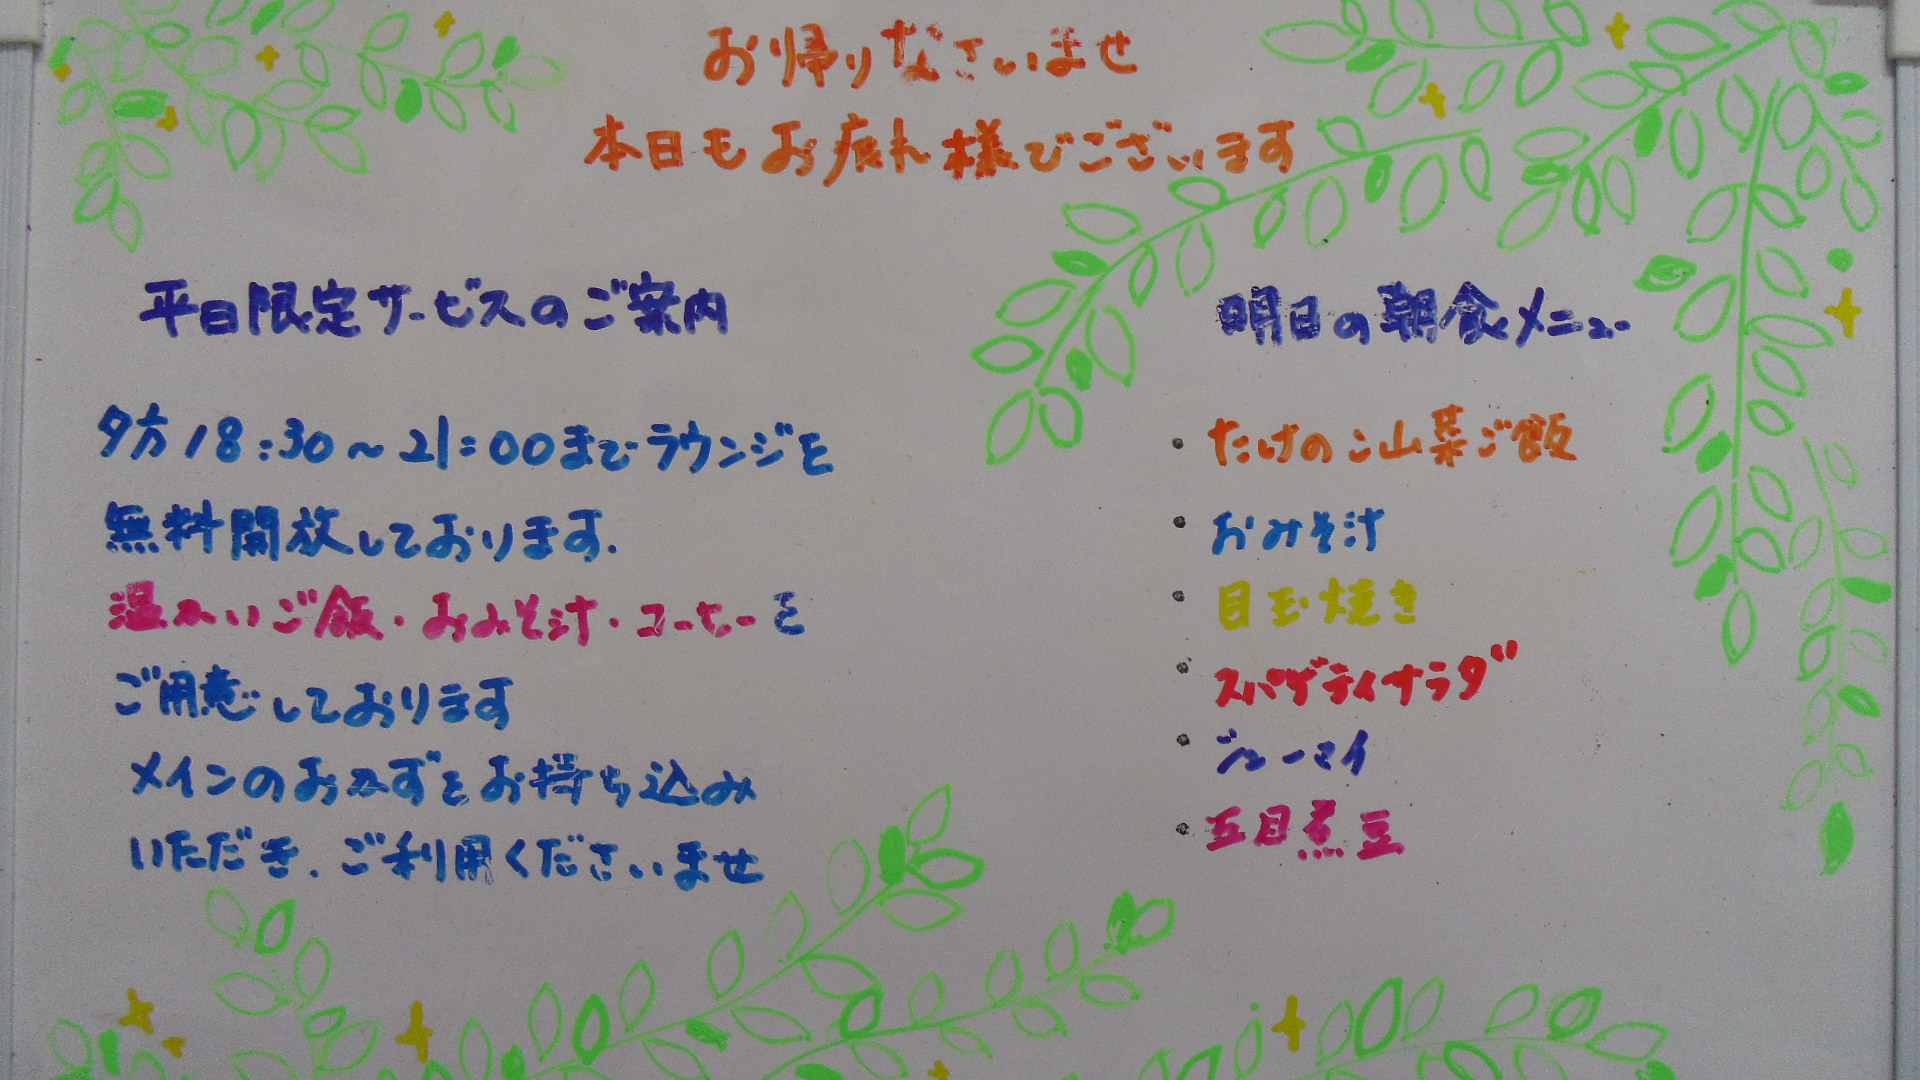 お帰りなさいませ
本日もお疲れ様でございます
平日限定サービスのご案内
夕方18:30～21:00までラウンジを
無料開放しております.
温かいご飯・おみそ汁・コーヒーを
ご用意しております
メインのおかずをお持ち込み
いただき.ご利用くださいませ
明日の朝食メニュー
・たけのこ山菜ご飯
・おみそ汁
・目玉焼き
・スパゲティサラダ
・シューマイ
・五目煮豆